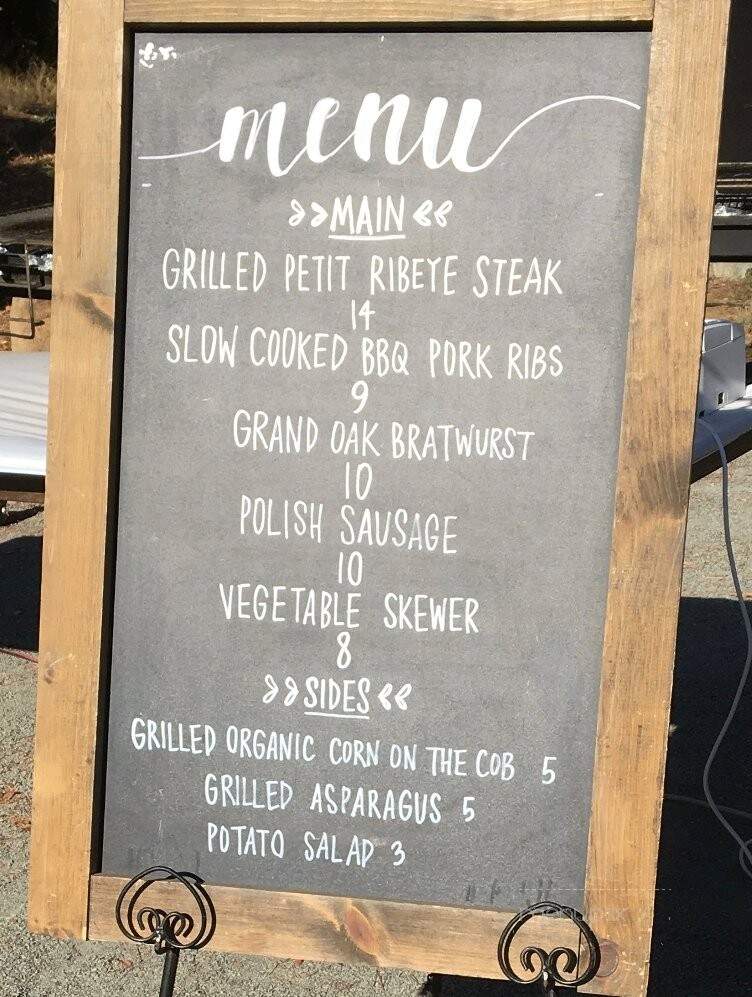 menu
MAIN
GRILLED PETIT RIBEYE STEAK
14
SLOW COOKED BBQ PORK RIBS
9
GRAND OAK BRATWURST
10
POLISH SAUSAGE
10
VEGETABLE SKEWER
8
SIDES
GRILLED ORGANIC CORN ON THE COB 5
GRILLED ASPARAGUS 5
POTATO SALAD 3